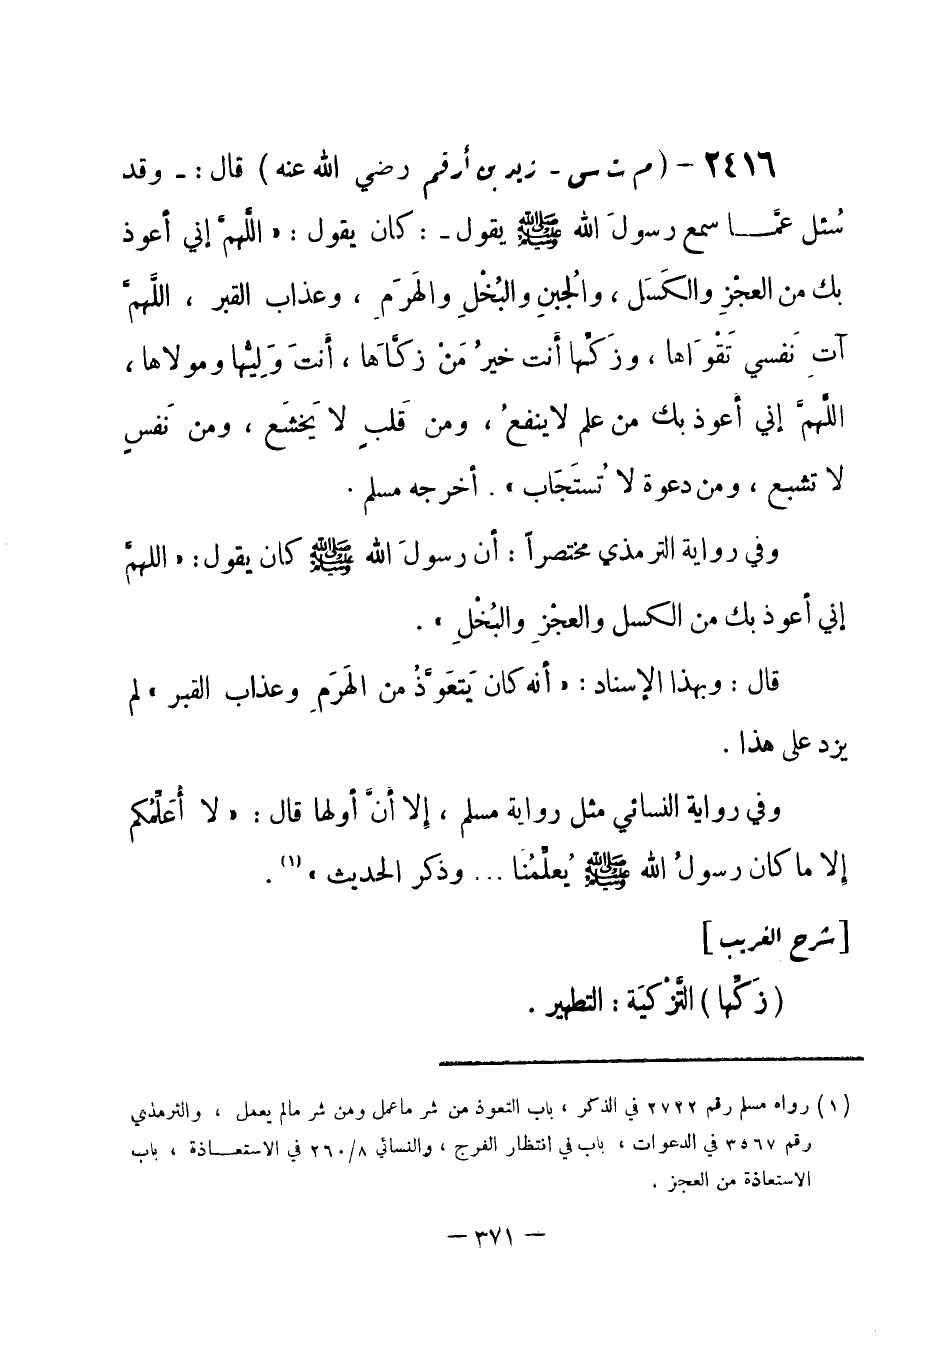 ٢٤١٦ - ( م ت س - زيد بن أرقم رضي الله عنه ) قال : - وقد
سُئل عمَّا سمع رسولَ الله ﷺ يقول - : كان يقول : « اللَّهمَّ إني أعوذ
بك من العجْزِ والكَسَل ، والجبنِ والبُخْلِ والهَرَمِ ، وعذاب القبر ، اللَّهمَّ
آتِ نَفسي تَقْوَاها ، وزَكّها أنت خيرُ مَنْ زكَّاَها ، أَنتَ وَلِيُّها ومولاها ،
اللَّهمَّ إني أَعوذ بك من علم لاينفعُ ، ومن قَلبٍ لا يَخشَع ، ومن نَفسٍ
لا تشبع ، ومن دعوة لا تُستَجَاب » . أخرجه مسلم .
وفي رواية الترمذي مختصراً : أن رسولَ الله ﷺ كان يقول : « اللهمَّ
إني أعوذ بك من الكسل والعجْزِ والبُخْلِ » .
قال : وبهذا الإسناد : « أنه كان يَتعَوَّذُ من الهَرَمِ وعذاب القبر » لم
يزد على هذا .
وفي رواية النسائي مثل رواية مسلم ، إلا أنَّ أولها قال : « لا أُعَلِّمُكم
إلا ما كان رسولُ الله ﷺ يُعلِّمُنَا ... وذكر الحديث » (١) .
[ شرح الغريب ]
( زَكِّها ) التَّزْكيَة : التطهير .
(١) رواه مسلم رقم ٢٧٢٢ في الذكر ، باب التعوذ من شر ماعمل ومن شر مالم يعمل ، والترمذي
رقم ٣٥٦٧ في الدعوات ، باب في انتظار الفرج ، والنسائي ٢٦٠/٨ في الاستعاذة ، باب
الاستعاذة من العجز .
- ٣٧١ -